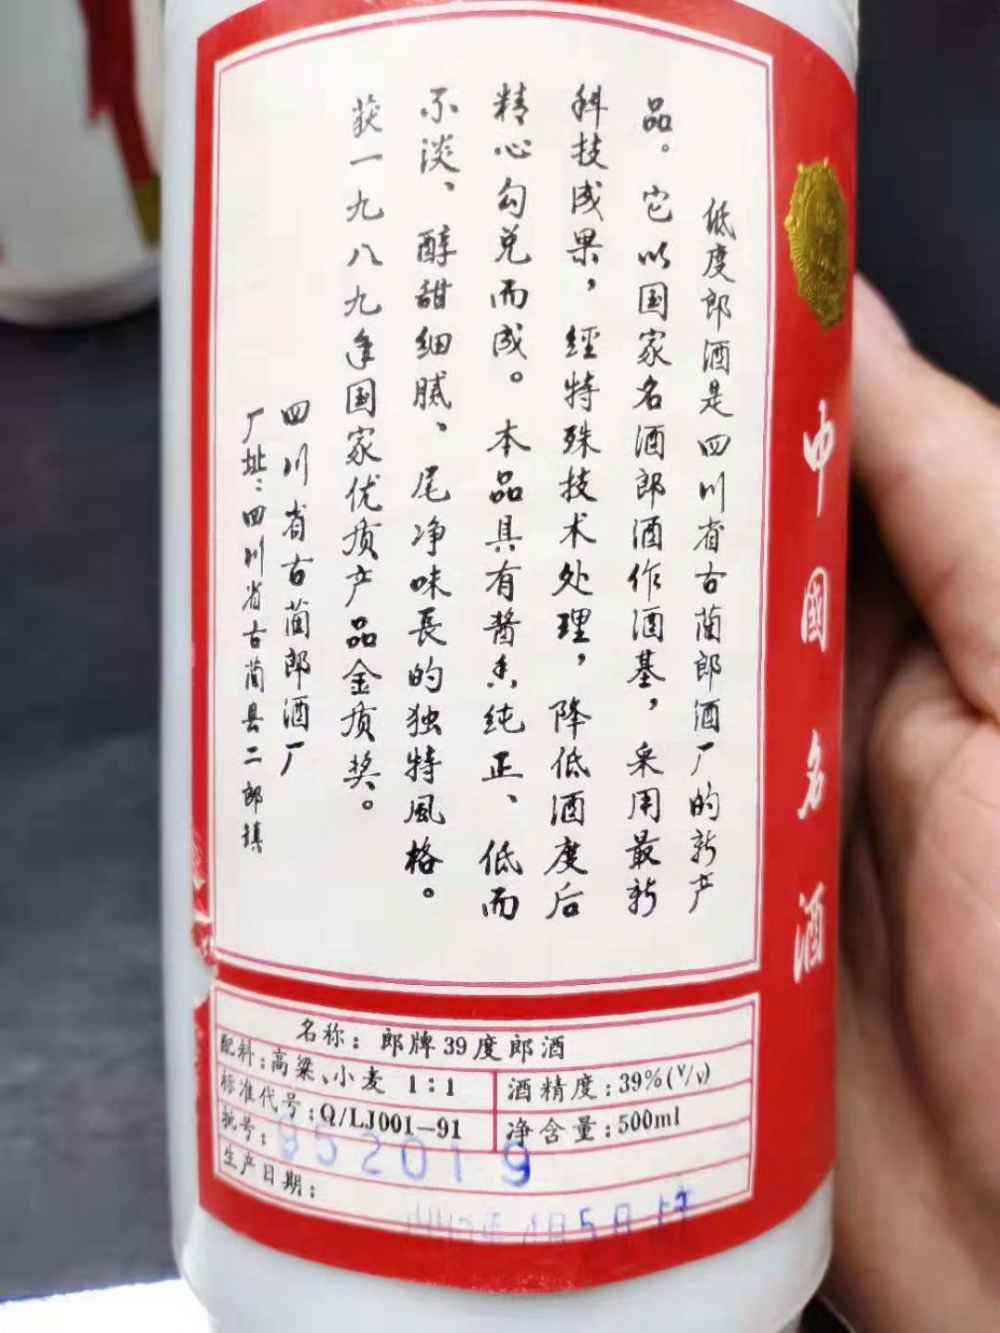 低度郎酒是四川省古蔺郎酒厂的新产
品。它以国家名酒郎酒作酒基，采用最新
科技成果，經特殊技术处理，降低酒度后
精心勾兑而成。本品具有酱香纯正、低而
不淡、醇甜细腻、尾净味長的独特風格。
获一九八九年国家优质产品金质奖。
四川省古蔺郎酒厂
厂址：四川省古蔺县二郎镇
中國名酒
名称：郎牌39度郎酒
配料：高粱、小麦 1：1
酒精度：39%(V/V)
标准代号：Q/LJ001-91
净含量：500ml
批号：952019
生产日期：